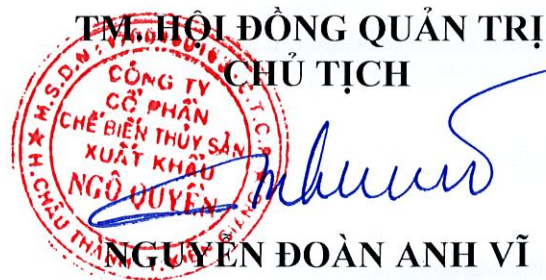 TM. HỘI ĐỒNG QUẢN TRỊ
CHỦ TỊCH
CÔNG TY
CỔ PHẦN
CHẾ BIẾN THỦY SẢN
XUẤT KHẨU
NGÔ QUYỀN
NGUYỄN ĐOÀN ANH VĨ